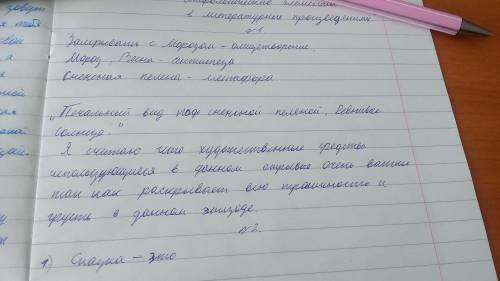 в литературных произведениях
№1
Заигрывать с Морозом - олицетворение
Мороз, Весна - антитеза
Снежная пелена - метафора
"Печальный вид под снежной пеленой, Ревнивое
солнце."
Я считаю что художественные средства
использующиеся в данном отрывке очень важны
так как раскрывает всю трагичность и
грусть в данном эпизоде.
№2
1) Сказка - это